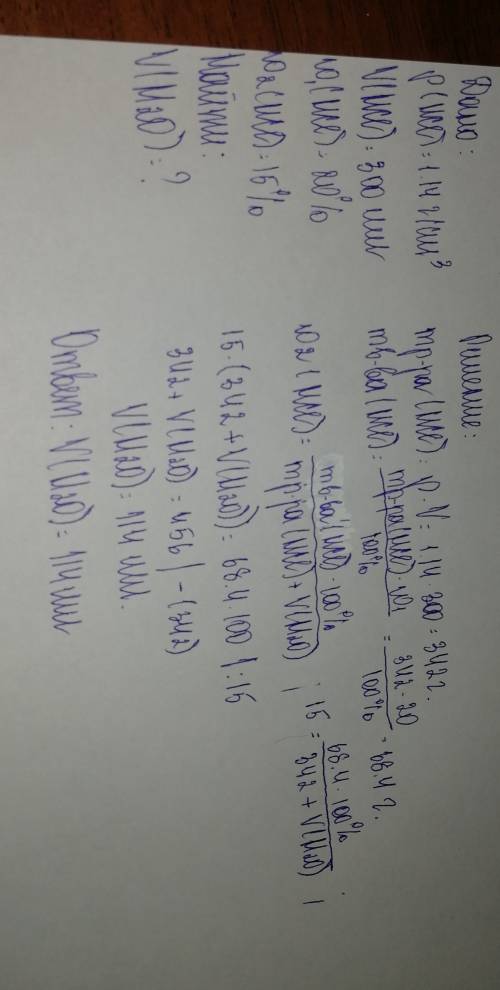 Дано:
ρ(HCl) = 1.14 г/см³
V(HCl) = 300 мл
ω₁(HCl) = 20%
ω₂(HCl) = 15%
Найти:
V(H₂O) = ?
Решение:
mр-ра(HCl) = ρ·V = 1,14·300 = 342 г.
mв-ва(HCl) = mр-ра(HCl)·ω₁ / 100% = 342·20 / 100% = 68.4 г.
ω₂(HCl) = mв-ва(HCl)·100% / mр-ра(HCl) + V(H₂O) ; 15 = 68.4·100% / 342 + V(H₂O) ;
15·(342 + V(H₂O)) = 68.4·100 |:15
342 + V(H₂O) = 456 | -(342)
V(H₂O) = 114 мл.
Ответ: V(H₂O) = 114 мл